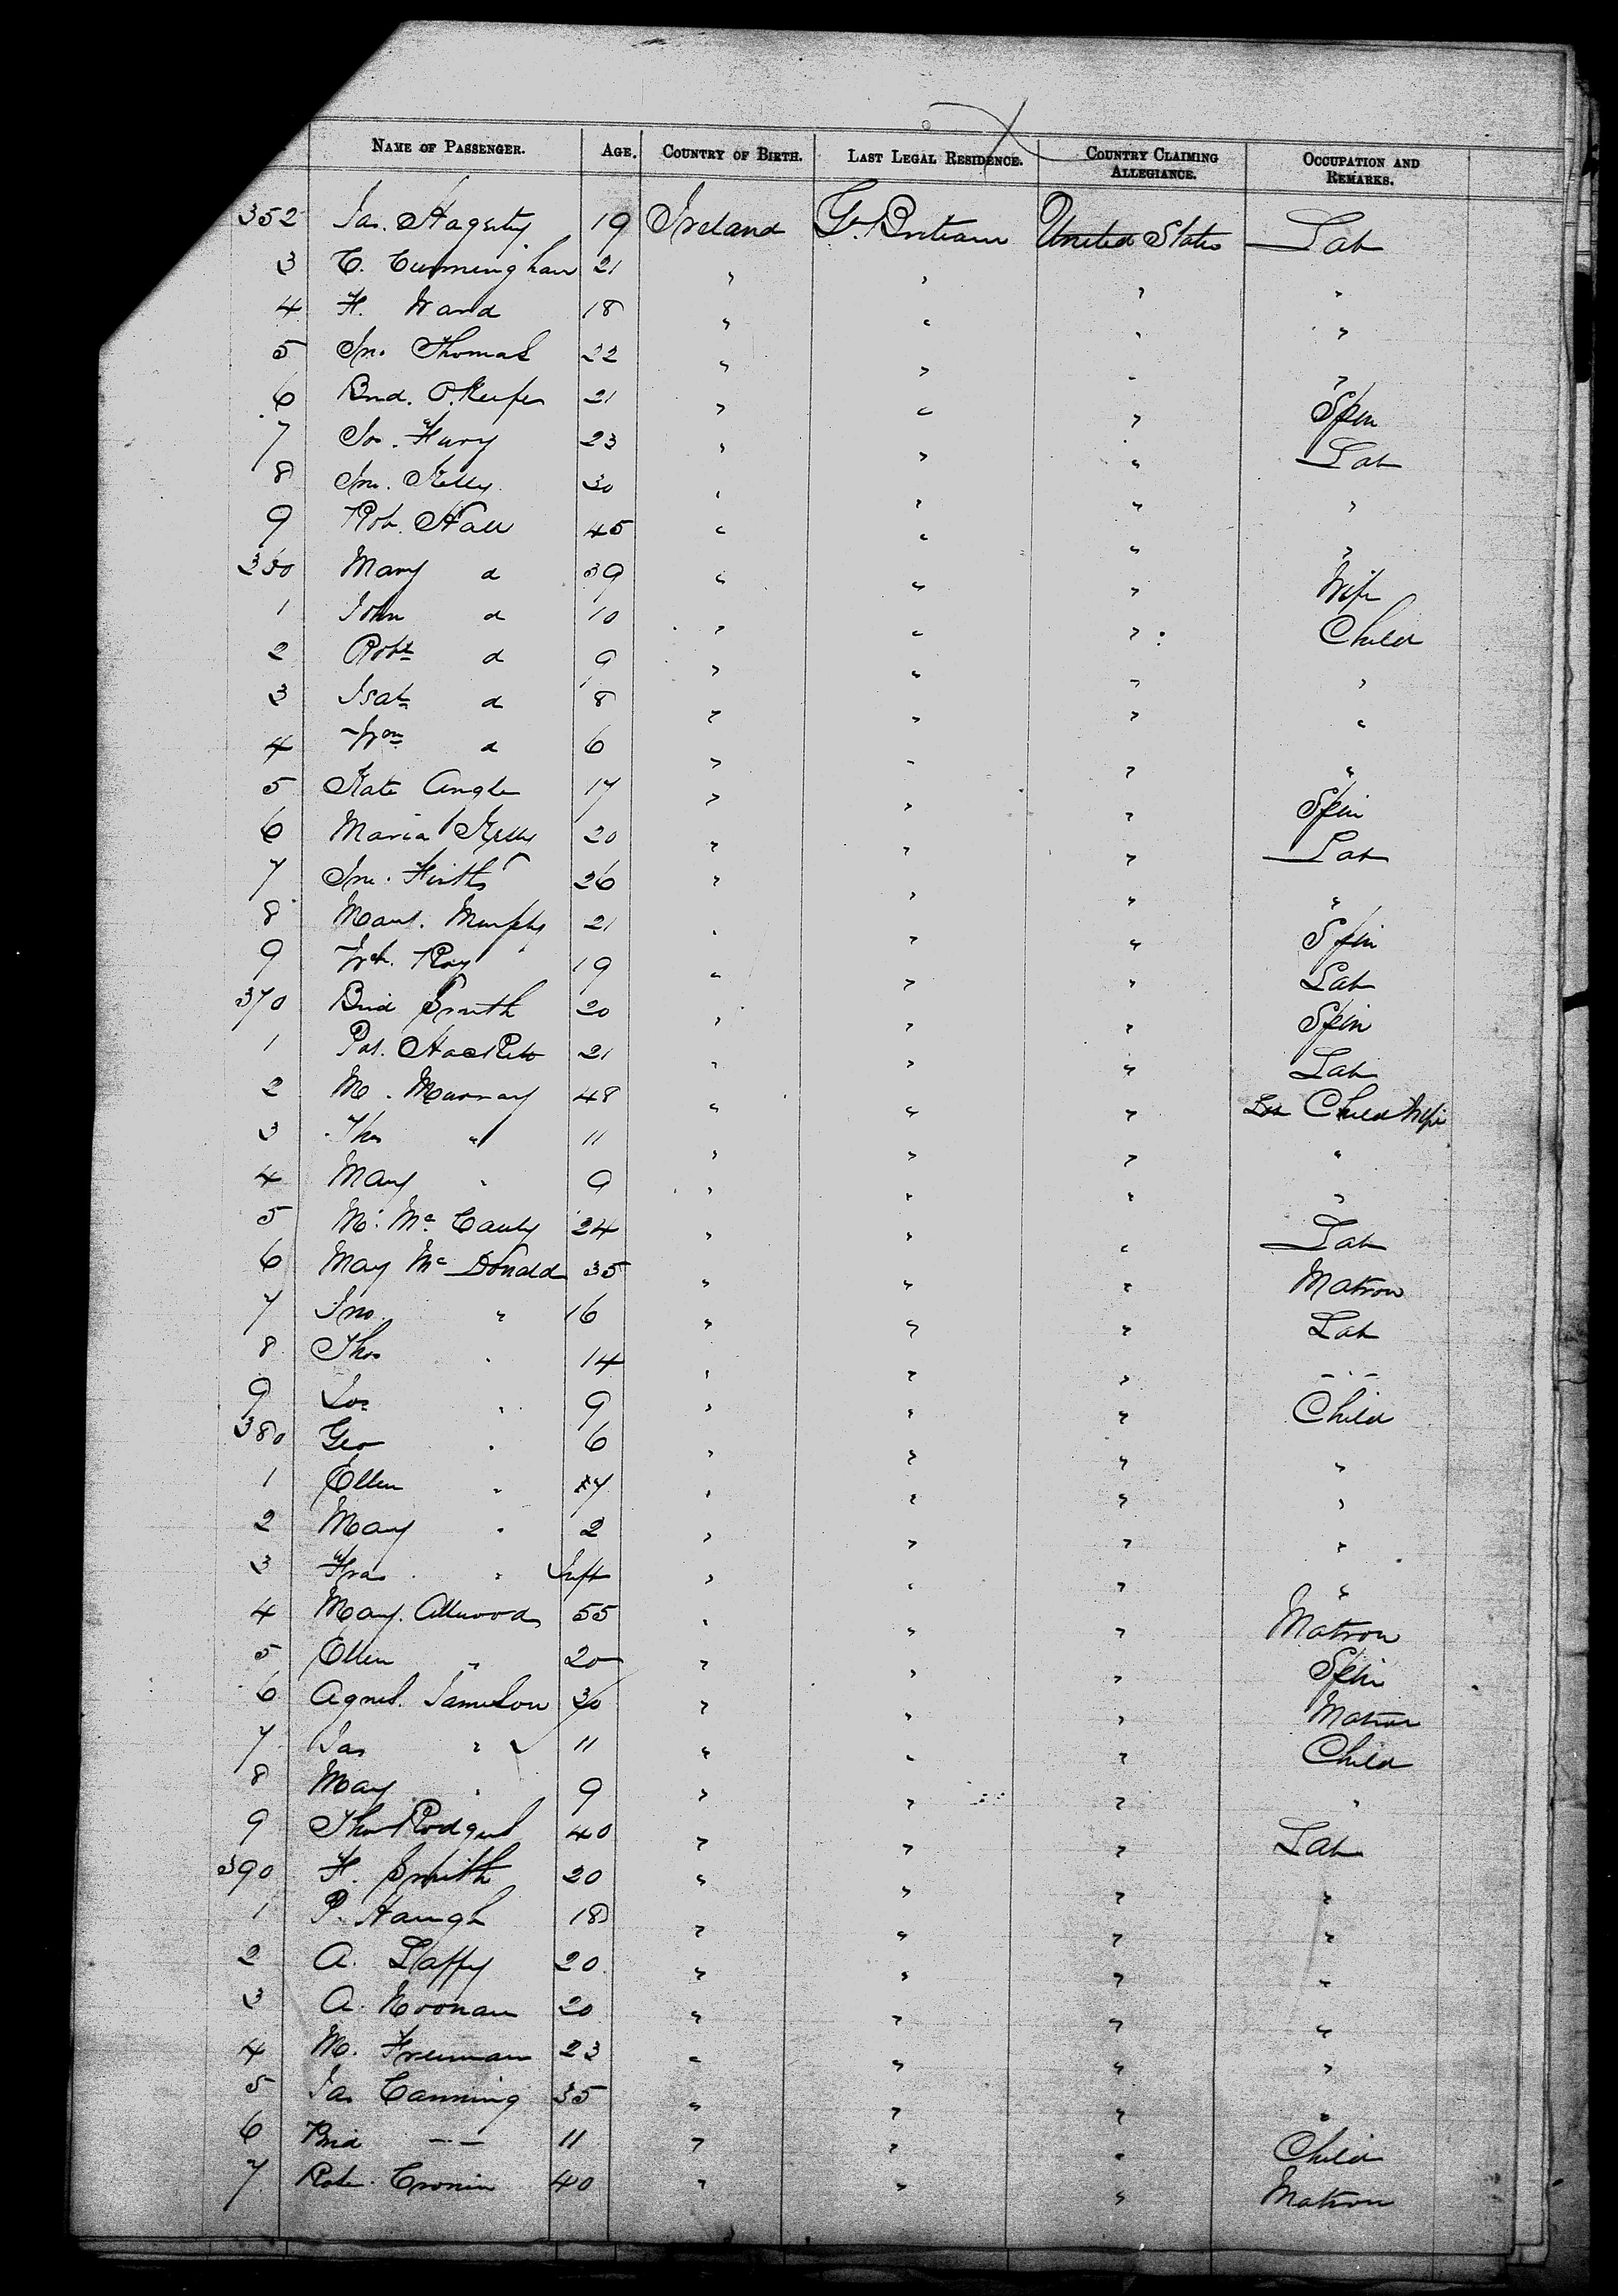 NAME OF PASSENGER. AGE. COUNTRY OF BIRTH. LAST LEGAL RESIDENCE. COUNTRY CLAIMING ALLEGIANCE. OCCUPATION AND REMARKS.
352 Jas. Hagerty 19 Ireland Gt. Britain United States Lab
3 C. Cunningham 21 " " " "
4 H. Ward 18 " " " "
5 Jno. Thomas 22 " " " "
6 Brid. O.Keefe 21 " " " Spin
7 Jos. Fury 23 " " " Lab
8 Jno. Kelly 30 " " " "
9 Rob. Hall 45 " " " "
360 Mary d 39 " " " Wife
1 John d 10 " " " Child
2 Robt d 9 " " " "
3 Isab d 8 " " " "
4 Wm d 6 " " " "
5 Kate Angle 17 " " " Spin
6 Maria Kelly 20 " " " Lab
7 Jno. Firth 26 " " " "
8 Mary. Murphy 21 " " " Spin
9 Roy 19 " " " Lab
370 Brid Smith 20 " " " Spin
1 Pat. Hackett 21 " " " Lab
2 M. Murray 48 " " " Child Wife
3 Thos " 11 " " " "
4 Mary " 9 " " " "
5 M. Mc Cauly 24 " " " Lab
6 Mary Mc Donald 35 " " " Matron
7 Jno. " 16 " " " Lab
8 Thos " 14 " " " - - -
9 Jos " 9 " " " Child
380 Geo " 6 " " " "
1 Ellen " 7 " " " "
2 Mary " 2 " " " "
3 Fras " Inft " " " "
4 Mary. Allwood 55 " " " Matron
5 Ellen " 20 " " " Spin
6 Agnes. Jameson 30 " " " Matron
7 Jas " 11 " " " Child
8 Mary " 9 " " " "
9 Thos Rodgers 40 " " " Lab
390 H. Smith 20 " " " "
1 P. Haugh 18 " " " "
2 A. Laffy 20 " " " "
3 A. Noonan 20 " " " "
4 M. Freeman 23 " " " "
5 Jas Canning 35 " " " "
6 Brid — — 11 " " " Child
7 Cronin 40 " " " Matron